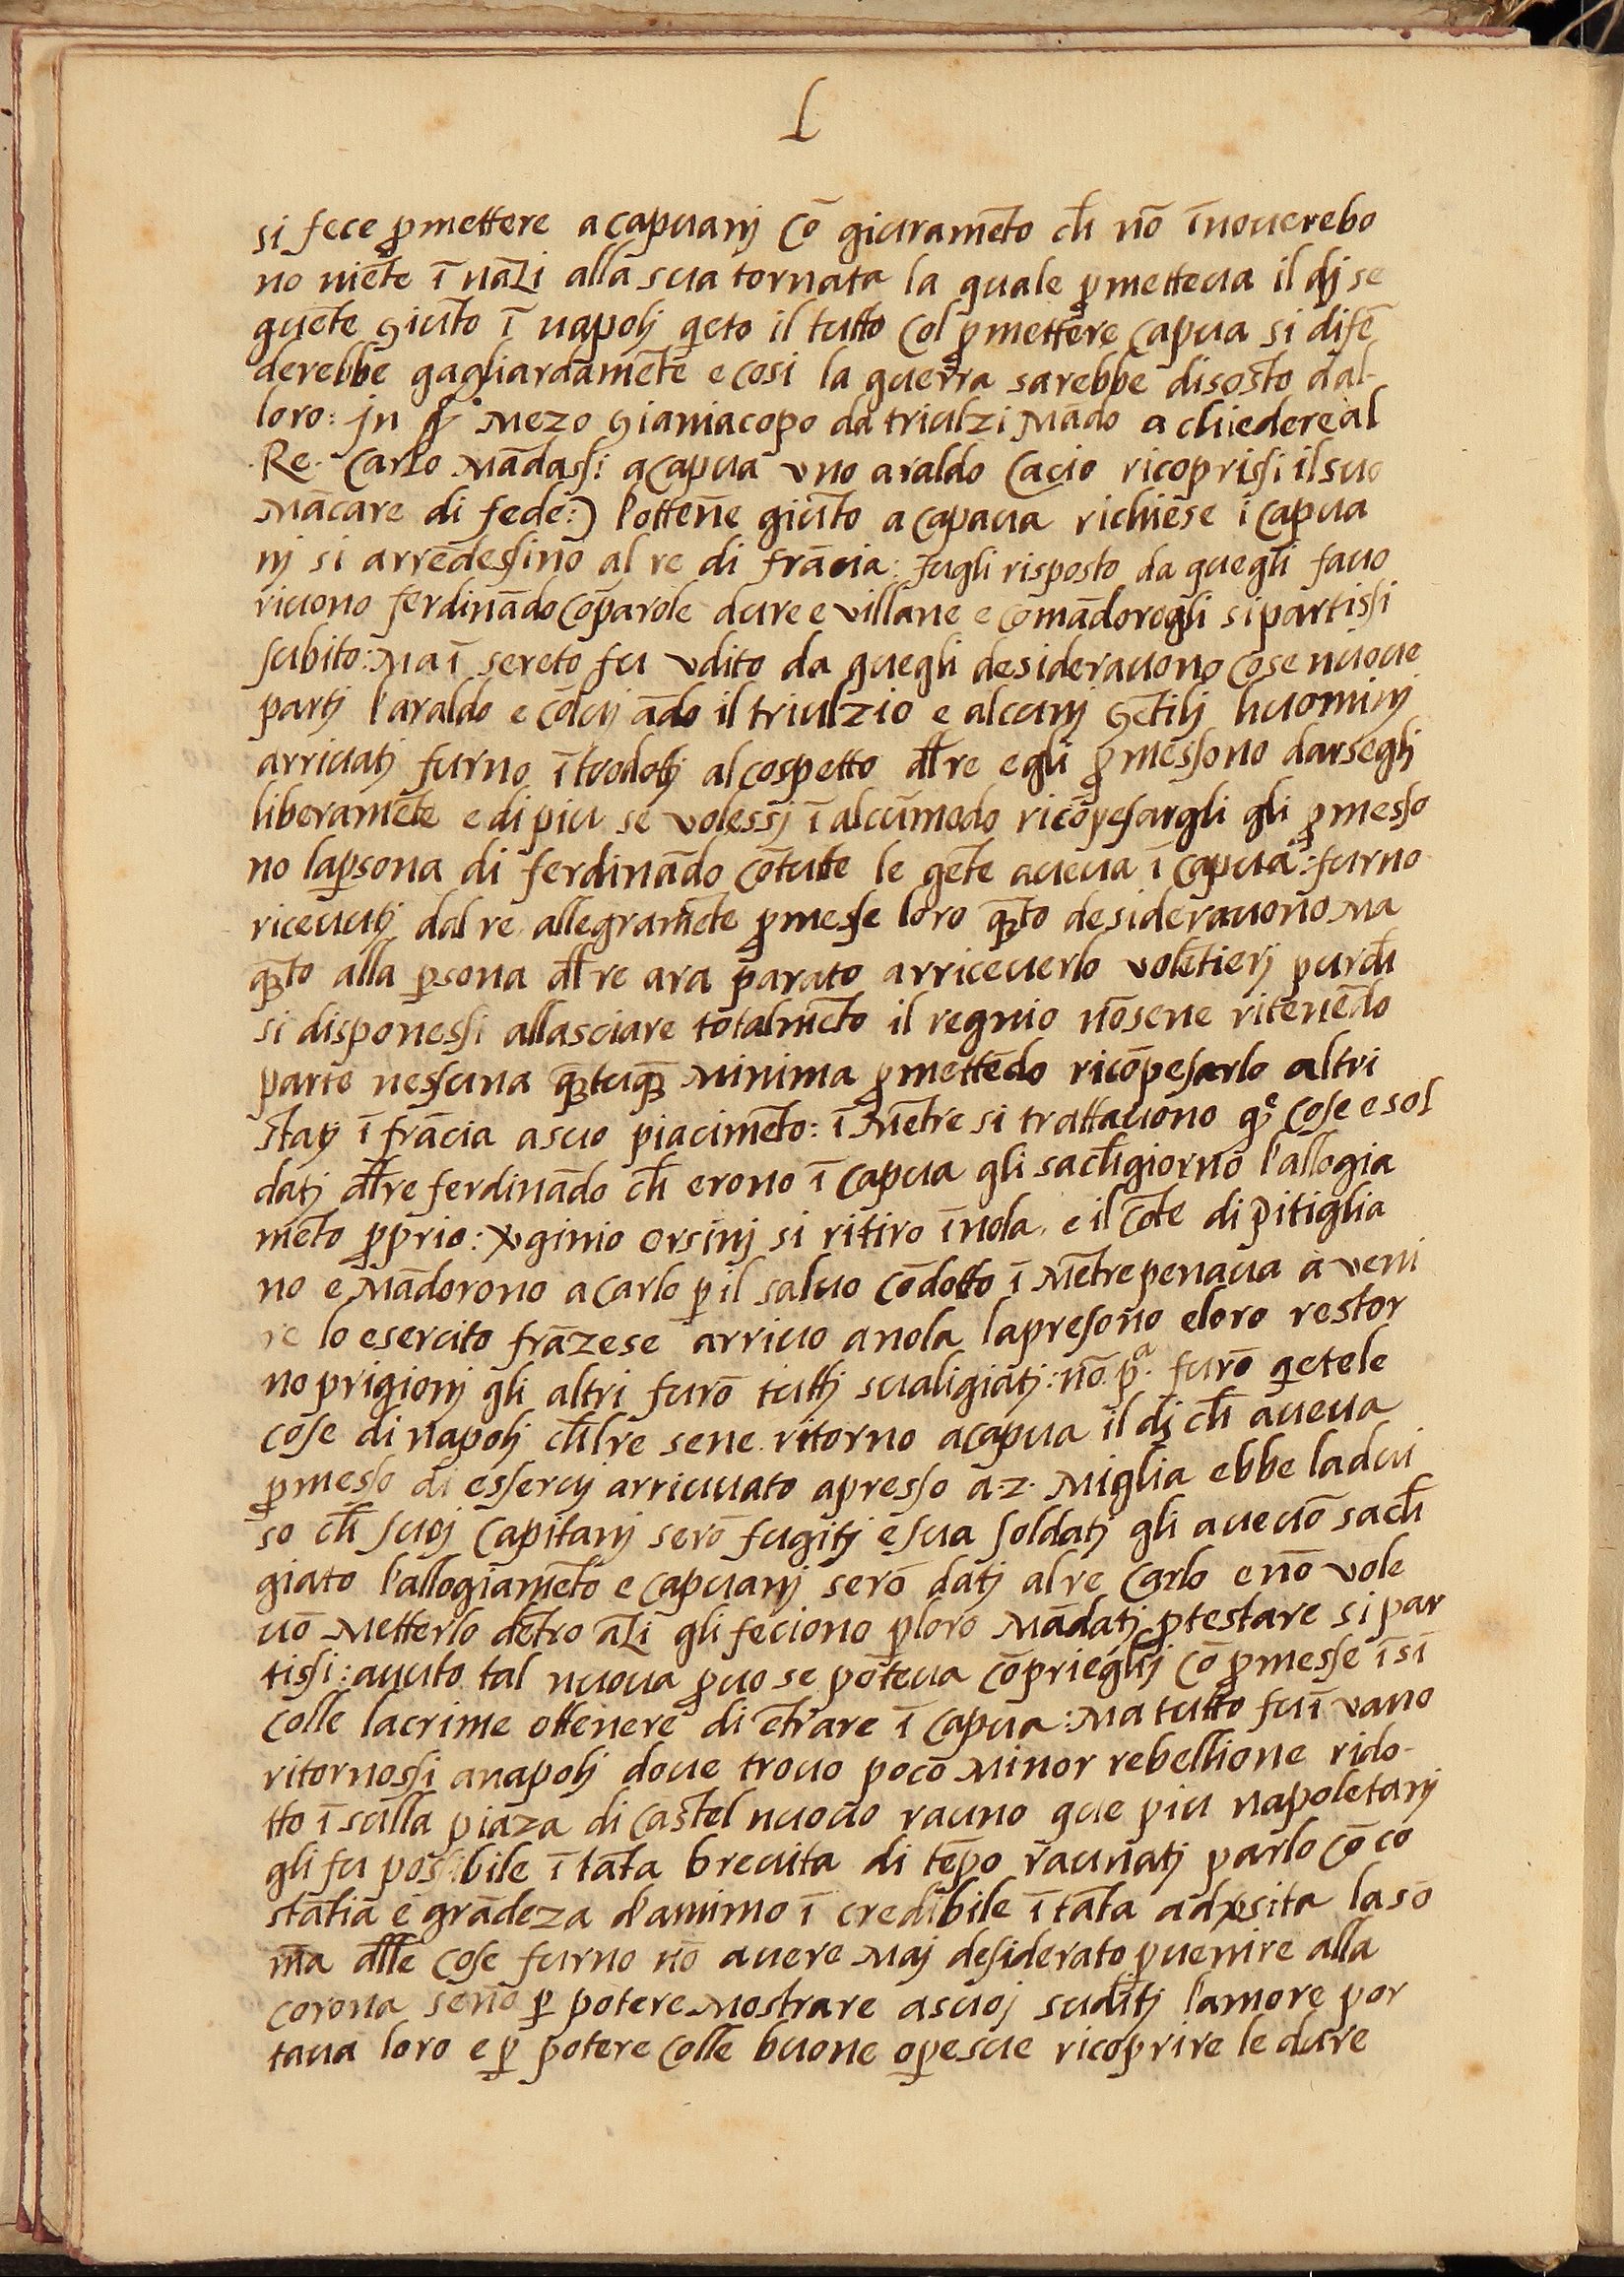 L
si fece ꝓmettere a capuanj cō giuramēto ch̄ nō īnouerebo
no niēte ī nāzi alla sua tornata la quale ꝓmetteua il dj se
guēte giūto ī napolj q̄eto il tutto col ꝓmettere capua si difē
derebbe gagliardamēte e cosi la guerra sarebbe discosto dal-
loro: jn mezo gianiacopo da triulzi mādo a chiedere al
Re Carlo mādassi a capua uno araldo cacio ricoprissi il suo
mācare di fede:) l'ottēne giūto a capaua richiese i capua
nj si arrēdessino al re di frācia: fugli risposto da quegli fauo
riuono ferdinādo cōparole dure e villane e comādorogli si partissi
subito: ma ī sereto fu udito da quegli desiderauono cose nuoue
partj l'araldo e cōdujādo il triulzio e alcunj gētilj huominj
arriuatj furno ītrodottj al cospetto dl̄ re e gli ꝓmessono darseglj
liberamēte e di piu se volessj ī alcūmodo ricōpesargli gli ꝓmesso
no la ꝑsona di ferdinādo cōtutte le gēte aueua ī capua: furno
riceuutj dal re allegramēte ꝓmesse loro quāto desiderauono ma
quāto alla ꝑsona dl̄ re ara parato arriceuerlo volētierj purch̄
si disponessi allasciare totalmēto il regnio nōsene ritenēdo
parte nessuna quātuquā minima ꝓmettēdo ricōpesarlo altri
statj ī frācia a suo piacimēto: ī mētre si trattauono qͤ cose e sol
datj dl̄ re ferdinādo ch̄ erono ī capua gli sach̄giorno l'allogia
mēto ꝓprio: Vginio orsinj si ritiro īnola e il cōte di pitiglia
no e mādorono a carlo ꝑ il saluo cōdotto ī mētre penaua a veni
re lo esercito frāzese arriuo a nola la presono e loro restor
no prigionj gli altri furō tuttj sualigiatj: nō pᵃ. furō q̄ete le
cose di napolj ch̄ l re sene ritorno a capua il dj ch̄ aueua
ꝓmesso di esseruj arriuuato apresso a .2. miglia ebbe ladui
so ch̄ suoj capitanj serō fugitj e sua soldatj gli aueuō sach̄
giato l'allogiamēto e capuanj serō datj al re carlo e nō vole
uō metterlo dētro āzi gli feciono ꝑ loro mādatj ꝓtestare si par
tissi: auuto tal nuoua ꝓuo se poteua cōprieghj cō ꝓmesse īsī
colle lacrime ottenere di ētrare ī capua: ma tutto fu ī vano
ritornossi a napolj doue trouo poco minor rebellione rido-
tto ī sulla piaza di castel nuouo rauno que piu napoletanj
gli fu possibile ī tāta breuita di tēpo raunatj parlo cō co
stātia e grādeza d'animo ī credibile ī tāta aduersita la sō
ma dl̄le cose furno nō auere maj desiderato ꝑuenire alla
corona senō ꝑ potere mostrare a suoj suditj l'amore por
taua loro e ꝑ potere colle buone opesue ricoprire le dure